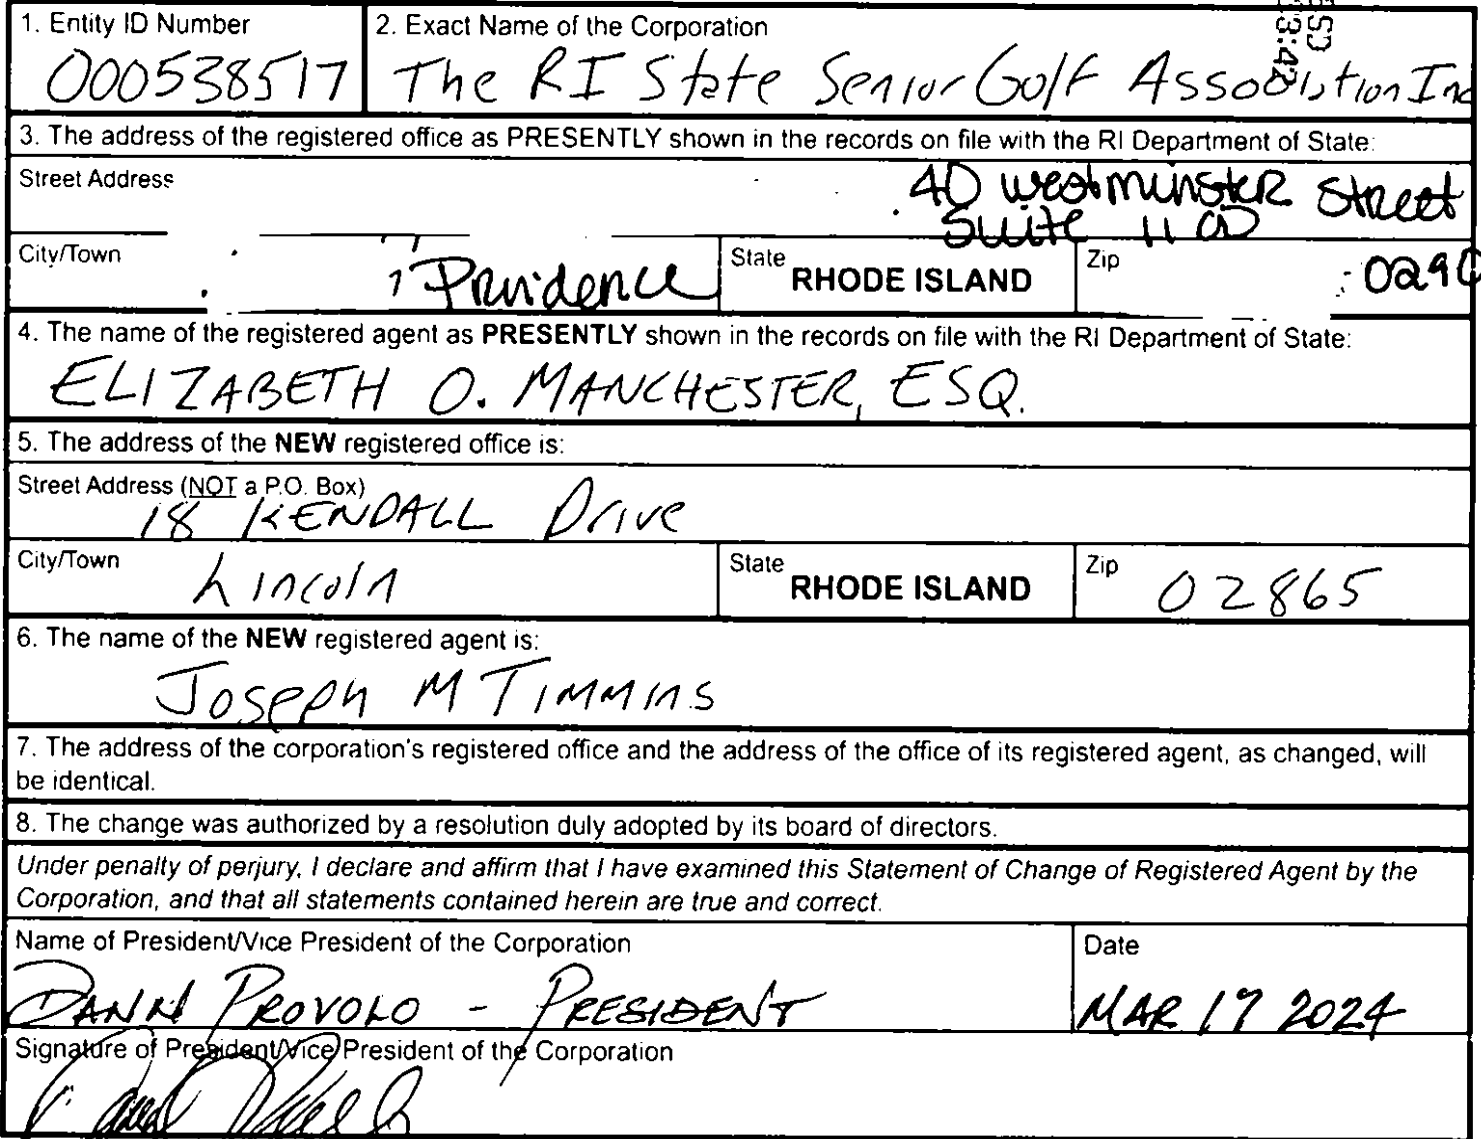 1. Entity ID Number
000538517
2. Exact Name of the Corporation
The RI State Senior Golf Association Inc
3:42
3. The address of the registered office as PRESENTLY shown in the records on file with the RI Department of State:
Street Address
40 Westminster Street
Suite 1100
City/Town
Providence
State
RHODE ISLAND
Zip
0290
4. The name of the registered agent as PRESENTLY shown in the records on file with the RI Department of State:
ELIZABETH O. MANCHESTER, ESQ.
5. The address of the NEW registered office is:
Street Address (NOT a P.O. Box)
18 KENDALL Drive
City/Town
Lincoln
State
RHODE ISLAND
Zip
02865
6. The name of the NEW registered agent is:
Joseph M Timmins
7. The address of the corporation's registered office and the address of the office of its registered agent, as changed, will
be identical.
8. The change was authorized by a resolution duly adopted by its board of directors.
Under penalty of perjury, I declare and affirm that I have examined this Statement of Change of Registered Agent by the
Corporation, and that all statements contained herein are true and correct.
Name of President/Vice President of the Corporation
DANN PROVOLO - PRESIDENT
Date
MAR 17 2024
Signature of President/Vice President of the Corporation